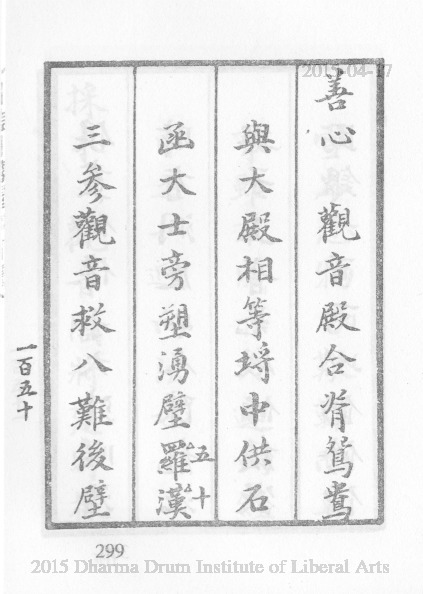 2015-04-17
善心　觀音殿合脊鴛鴦
與大殿相等埒中供石
函大士旁塑湧壁羅漢五十
三參觀音救八難後壁
一百五十
299
2015 Dharma Drum Institute of Liberal Arts